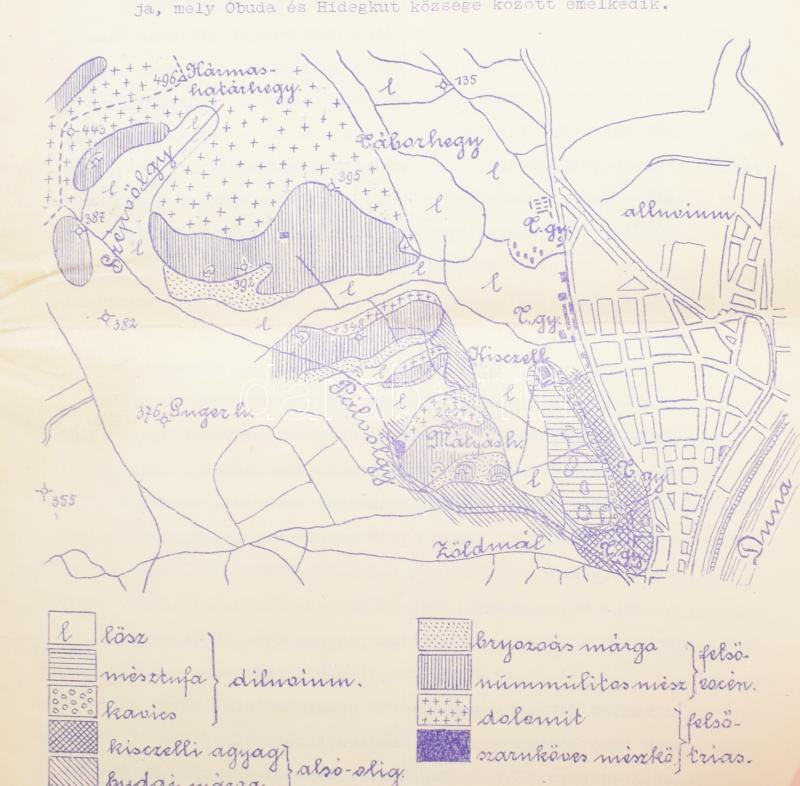 ja, mely Óbuda és Hidegkut községe között emelkedik.
496 Hármas-
határhegy.
135
l
443
l
Táborhegy
l
Szépvölgy
l
395
l
l
alluvium
387
T.gy.
l
392
l
l
l
382
l
348
T.gy.
Kisczell
l
376
l
l
Pálvölgy
Mátyáshe.
T.gy.
l
355
Duna
Zöldmál
T.gy.
l lösz
mésztufa
kavics
diluvium.
kisczelli agyag
budai márga
alsó-olig.
bryozoás márga
nummulitos mész
felső-
eocén.
dolomit
szaruköves mészkő
felső-
trias.
darabanth